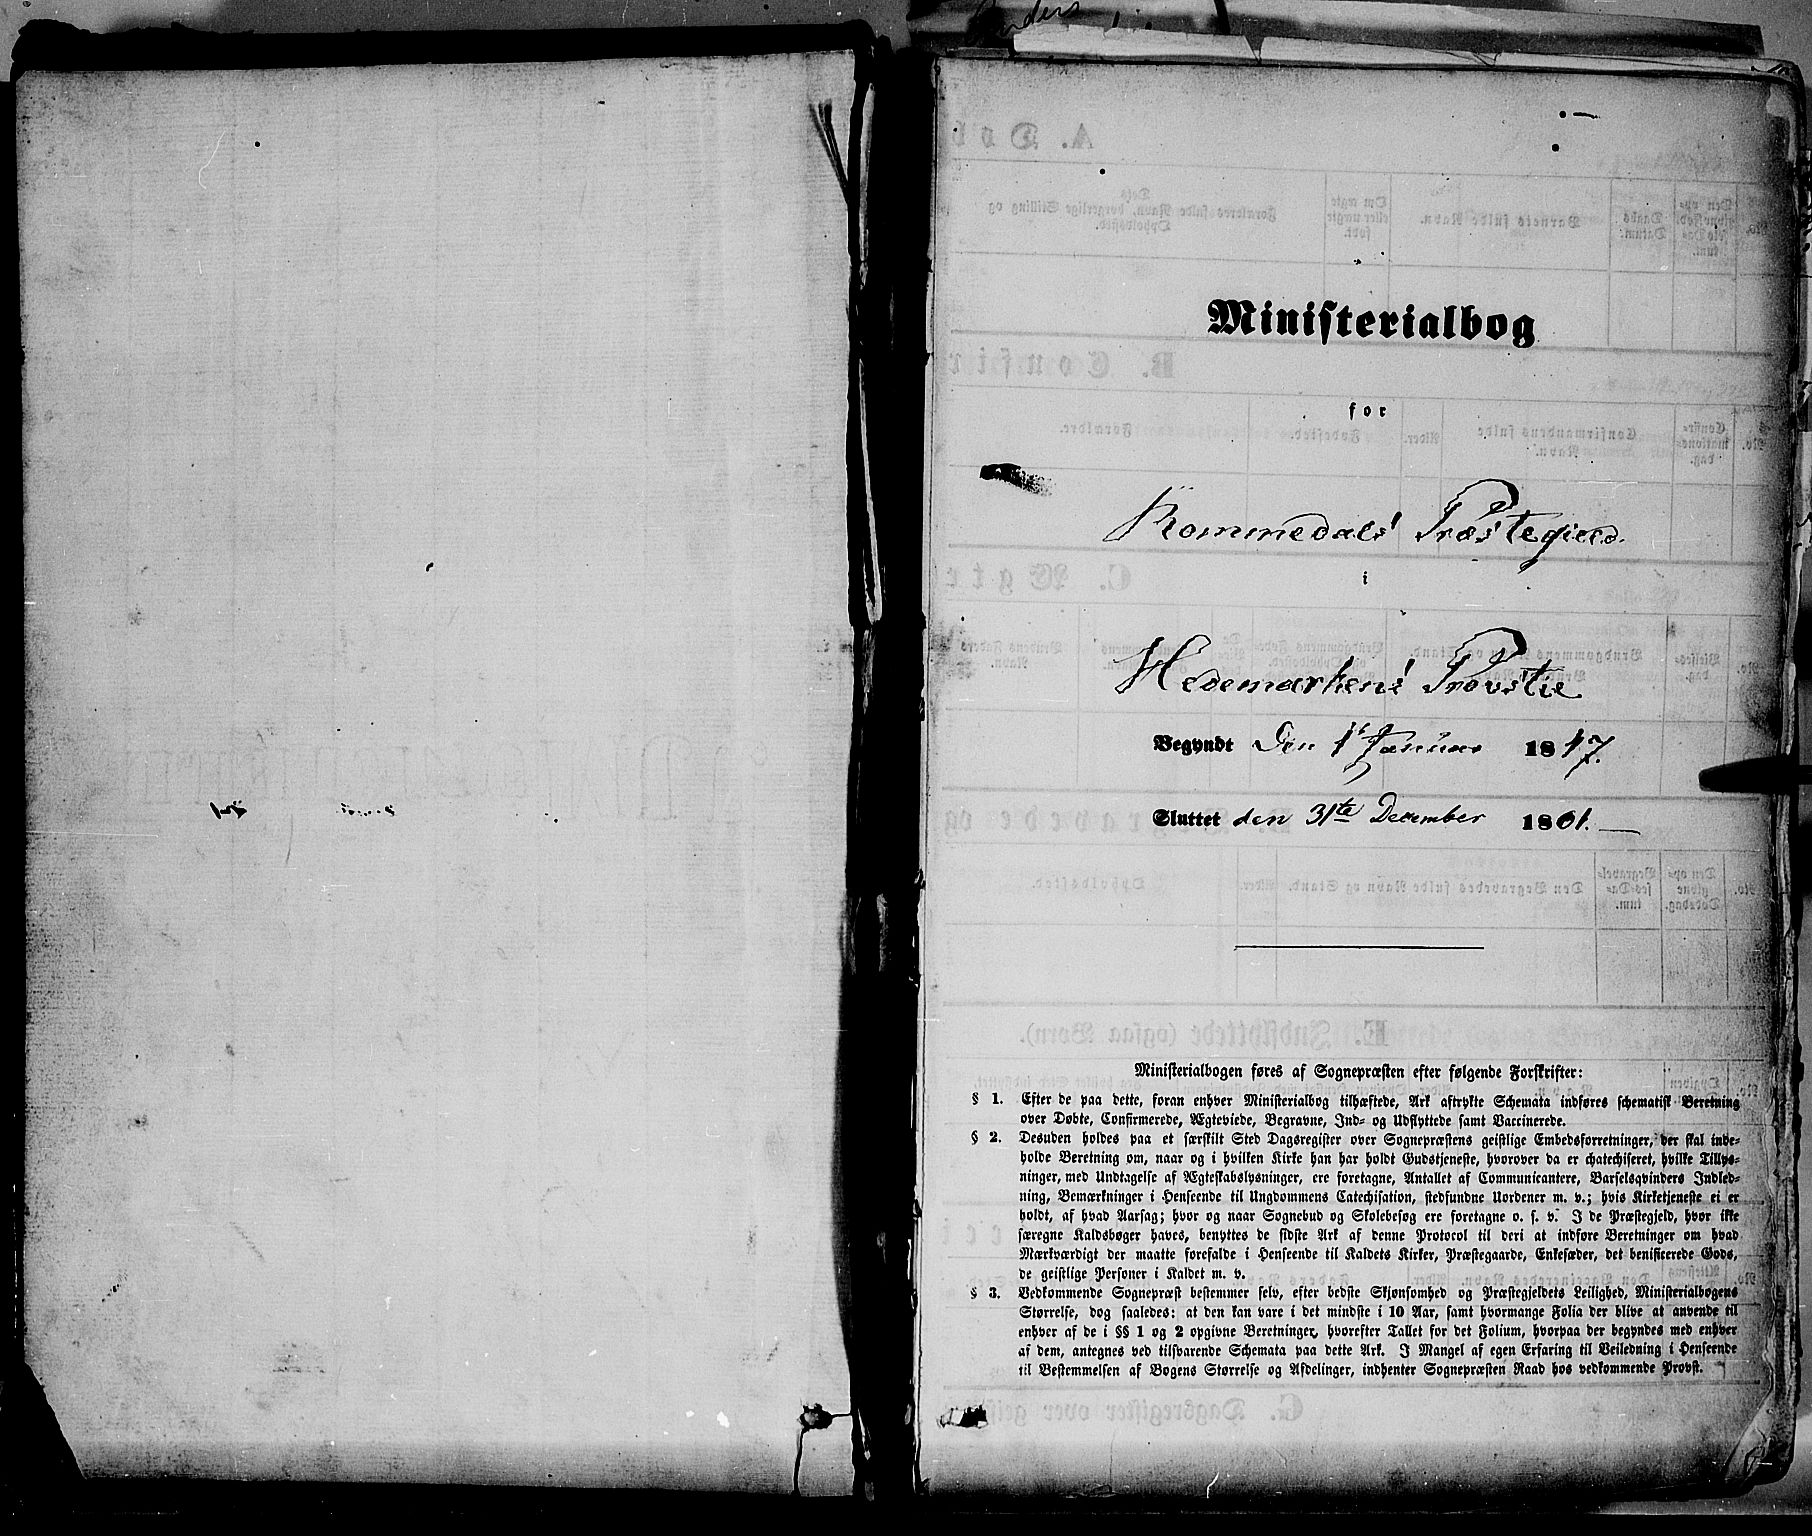 Ministerialbog
for
Rommedals Præstegield.
i
Hedemarkens Provstie
Begyndt Den 1ste Januar 1847.
Sluttet den 31te December 1861.
Ministerialbogen føres af Sognepræsten efter følgende Forskrifter:
§ 1. Efter de paa dette, foran enhver Ministerialbog tilhæftede, Ark aftrykte Schemata indføres schematisk Beretning
over Døbte, Confirmerede, Ægteviede, Begravne, Ind- og Udflyttede samt Vaccinerede.
§ 2. Desuden holdes paa et særskilt Sted Dagsregister over Sognepræstens geistlige Embedsforretninger, der skal inde-
holde Beretning om, naar og i hvilken Kirke han har holdt Gudstjeneste, hvorover da er chatechiseret, hvilke Tillys-
ninger, med Undtagelse af Ægteskabslysninger, ere foretagne, Antallet af Communicantere, Barselsqvinders Indled-
ning, Bemærkninger i Henseende til Ungdommens Catechisation, stedfundne Uordener m. v.; hvis Kirketjeneste ei er
holdt, af hvad Aarsag; hvor og naar Sognebud og Skolebesøg ere foretagne o. s. v. I de Præstegjeld, hvor ikke
særegne Kaldsbøger haves, benyttes de sidste Ark af denne Protocol til deri at indføre Beretninger om hvad
Mærkværdigt der maatte forefalde i Henseende til Kaldets Kirker, Præstegaarde, Enkesæder, det benificerede Gods,
de geistlige Personer i Kaldet m. v.
§ 3. Vedkommende Sognepræst bestemmer selv, efter bedste Skjønsomhed og Præstegjeldets Leilighed, Ministerialbogens
Størrelse, dog saaledes: at den kan vare i det mindste i 10 Aar, samt hvormange Folia der blive at anvende til
enhver af de i §§ 1 og 2 opgivne Beretninger, hvorefter Tallet for det Folium, hvorpaa der begyndes med enhver
af dem, antegnes ved tilsvarende Schemata paa dette Ark. I Mangel af egen Erfaring til Veiledning i Henseende
til Bestemmelsen af Bogens Størrelse og Afdelinger, indhenter Sognepræsten Raad hos vedkommende Provst.